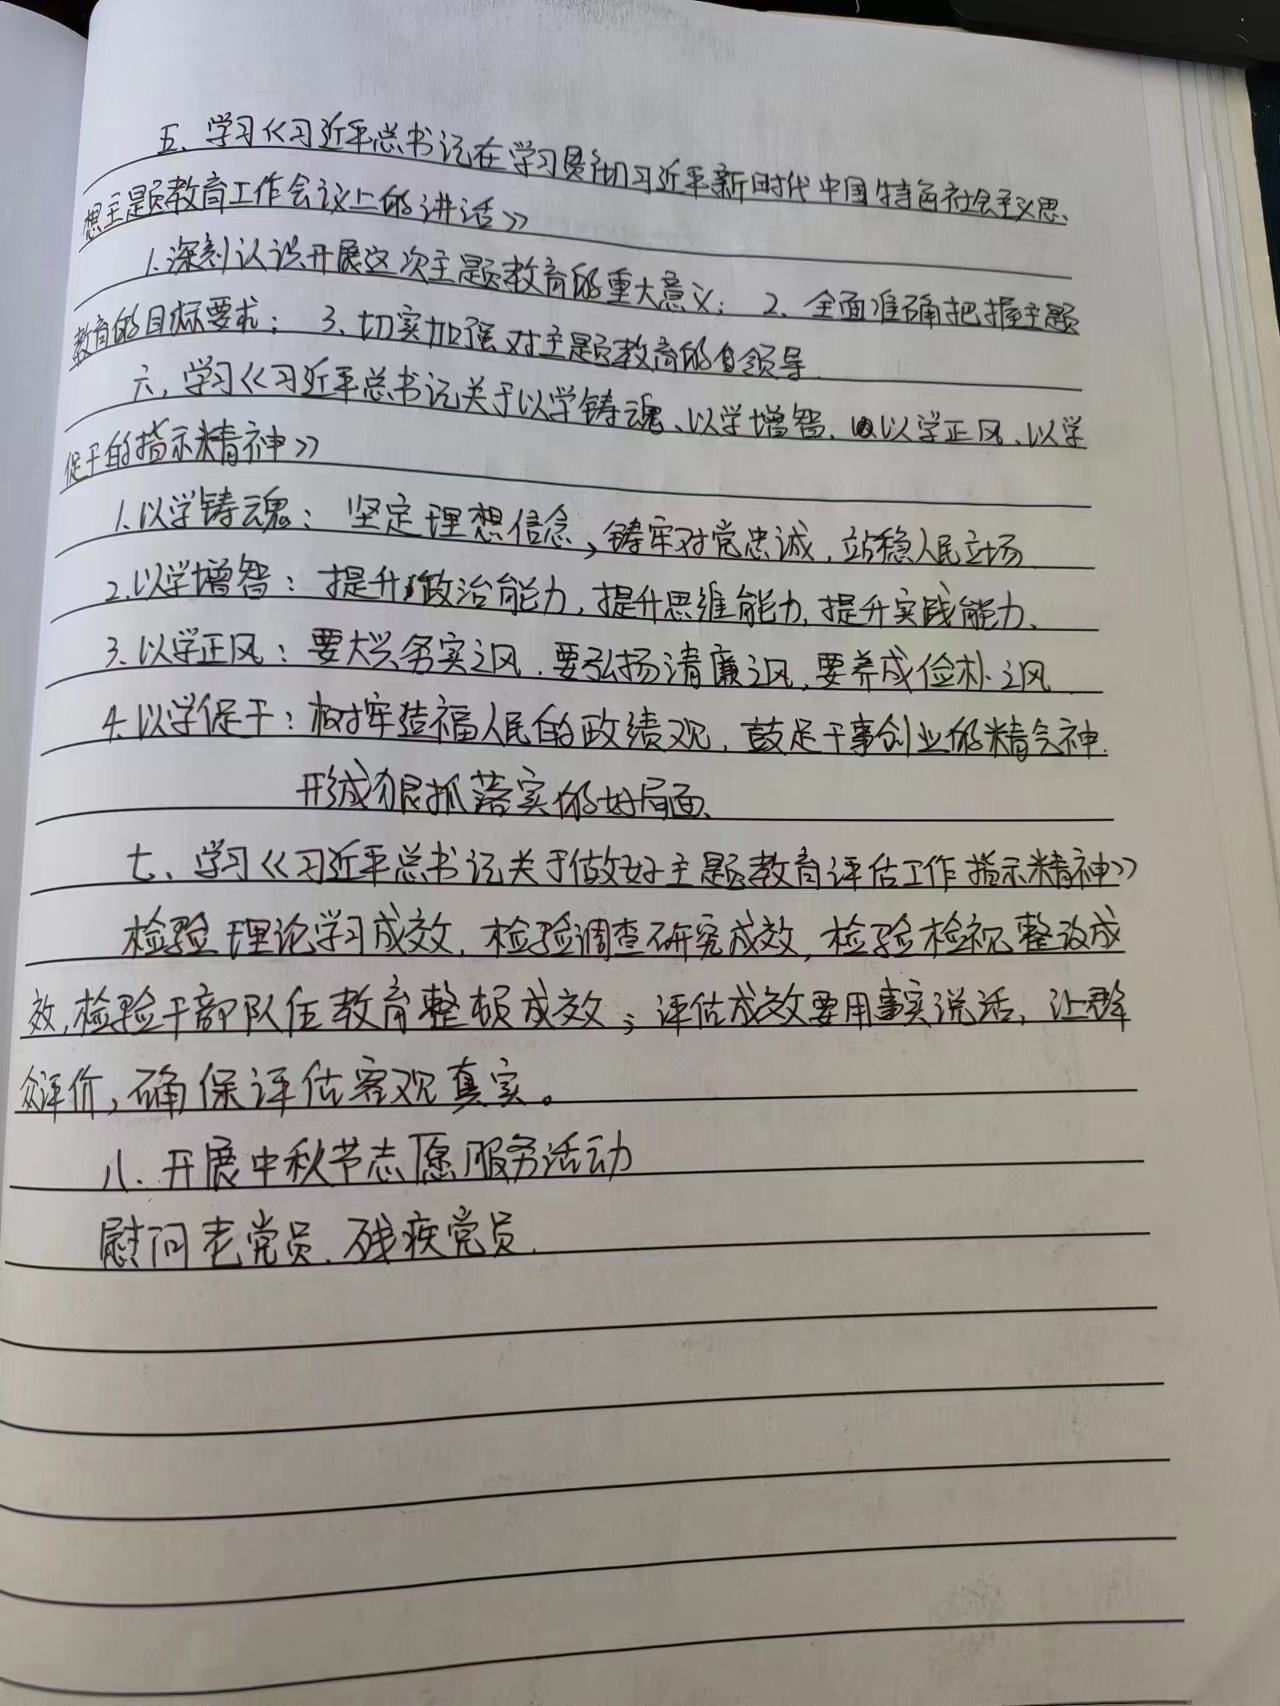 五、学习《习近平总书记在学习贯彻习近平新时代中国特色社会主义思
想主题教育工作会议上的讲话》
1.深刻认识开展这次主题教育的重大意义；2.全面准确把握主题
教育的目标要求；3.切实加强对主题教育的领导.
六、学习《习近平总书记关于以学铸魂、以学增智、以学正风、以学
促干的指示精神》
1.以学铸魂：坚定理想信念，铸牢对党忠诚，站稳人民立场
2.以学增智：提升政治能力，提升思维能力，提升实践能力、
3.以学正风：要大兴务实之风，要弘扬清廉之风，要养成俭朴之风
4.以学促干：树牢造福人民的政绩观，鼓足干事创业的精气神.
形成狠抓落实的好局面、
七、学习《习近平总书记关于做好主题教育评估工作指示精神》
检验理论学习成效，检验调查研究成效，检验检视整改成
效，检验干部队伍教育整顿成效；评估成效要用事实说话，让群
众评价，确保评估客观真实。
八、开展中秋节志愿服务活动
慰问老党员、残疾党员.